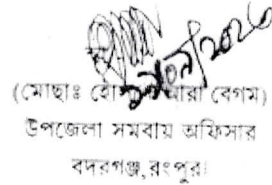 (মোছাঃ হো আরা বেগম)
উপজেলা সমবায় অফিসার
বদরগঞ্জ,রংপুর।